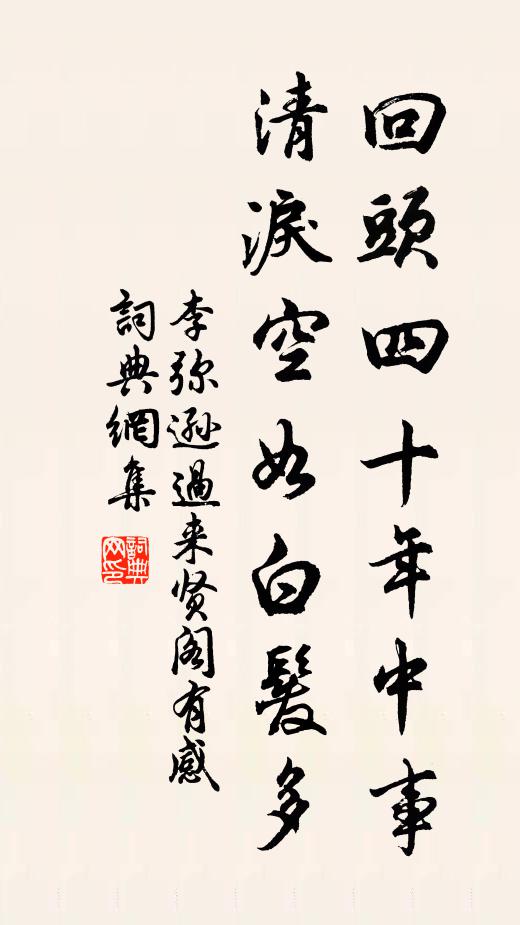 回頭四十年中事
清淚空如白髮多
李弥遜過来贤阁有感
詞典網集
詞典网印